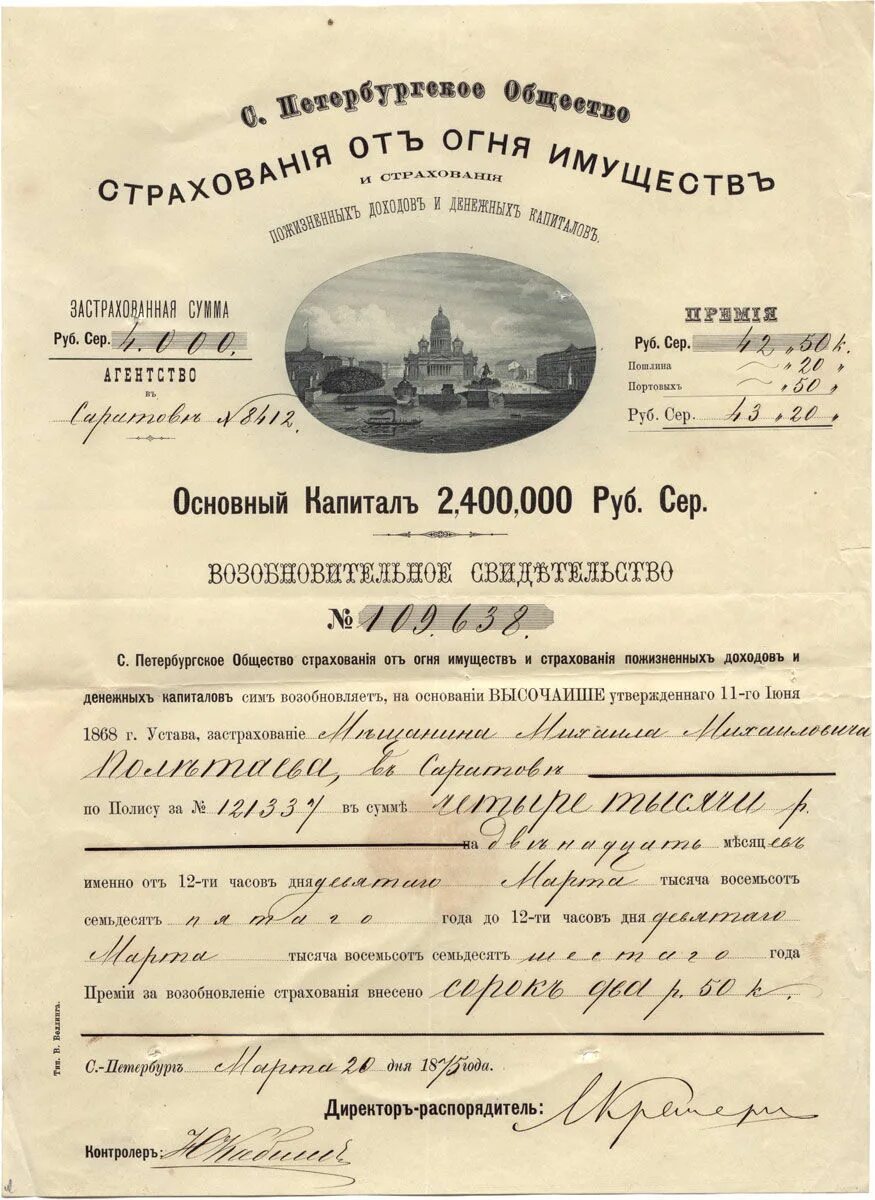 С. Петербургское Общество
СТРАХОВАНІЯ ОТЪ ОГНЯ ИМУЩЕСТВЪ
И СТРАХОВАНІЯ
ПОЖИЗНЕННЫХЪ ДОХОДОВЪ И ДЕНЕЖНЫХЪ КАПИТАЛОВЪ.
ЗАСТРАХОВАННАЯ СУММА
Руб. Сер. 4.000.
АГЕНТСТВО
въ
Саратовѣ №8412.
ПРЕМІЯ
Руб. Сер. 42 „ 50 к.
Пошлина ~ „ 20 „
Портовыхъ ~ „ 50 „
Руб. Сер. 43 „ 20 „
Основный Капиталъ 2,400,000 Руб. Сер.
ВОЗОБНОВИТЕЛЬНОЕ СВИДѢТЕЛЬСТВО
№ 109.638.
С. Петербургское Общество страхованія отъ огня имуществъ и страхованія пожизненныхъ доходовъ и
денежныхъ капиталовъ симъ возобновляетъ, на основаніи ВЫСОЧАИШЕ утвержденнаго 11-го Іюня
1868 г. Устава, застрахованіе Мѣщанина Михаила Михаиловича
Полѣтаева, въ Саратовѣ
по Полису за № 121337 въ суммѣ четыре тысячи р.
на двѣнадцать мѣсяцевъ
именно отъ 12-ти часовъ дня девятаго Марта тысяча восемьсотъ
семьдесятъ пятаго года до 12-ти часовъ дня девятаго
Марта тысяча восемьсотъ семьдесятъ шестаго года
Преміи за возобновленіе страхованія внесено сорокъ два р. 50 к.
С.-Петербургъ Марта 20 дня 1875 года.
Директоръ-распорядитель:
Контролеръ:
Тип. В. Веллинга.